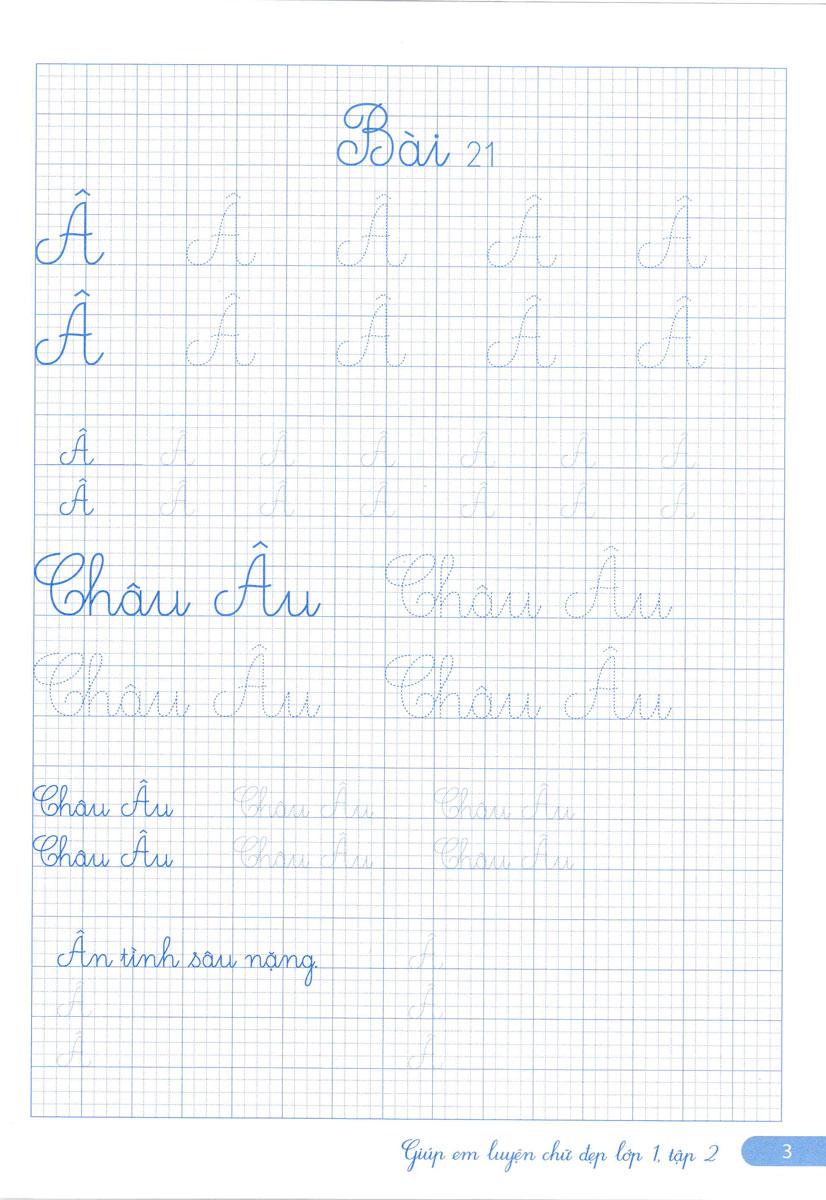 Bài 21
Â Â Â Â Â
Â Â Â Â Â
Â Â Â Â Â Â Â
Â Â Â Â Â Â Â
Châu Âu Châu Âu
Châu Âu Châu Âu
Châu Âu Châu Âu Châu Âu
Châu Âu Châu Âu Châu Âu
Ân tình sâu nặng. Â
Â Â
Â Â
Giúp em luyện chữ đẹp lớp 1, tập 2 3